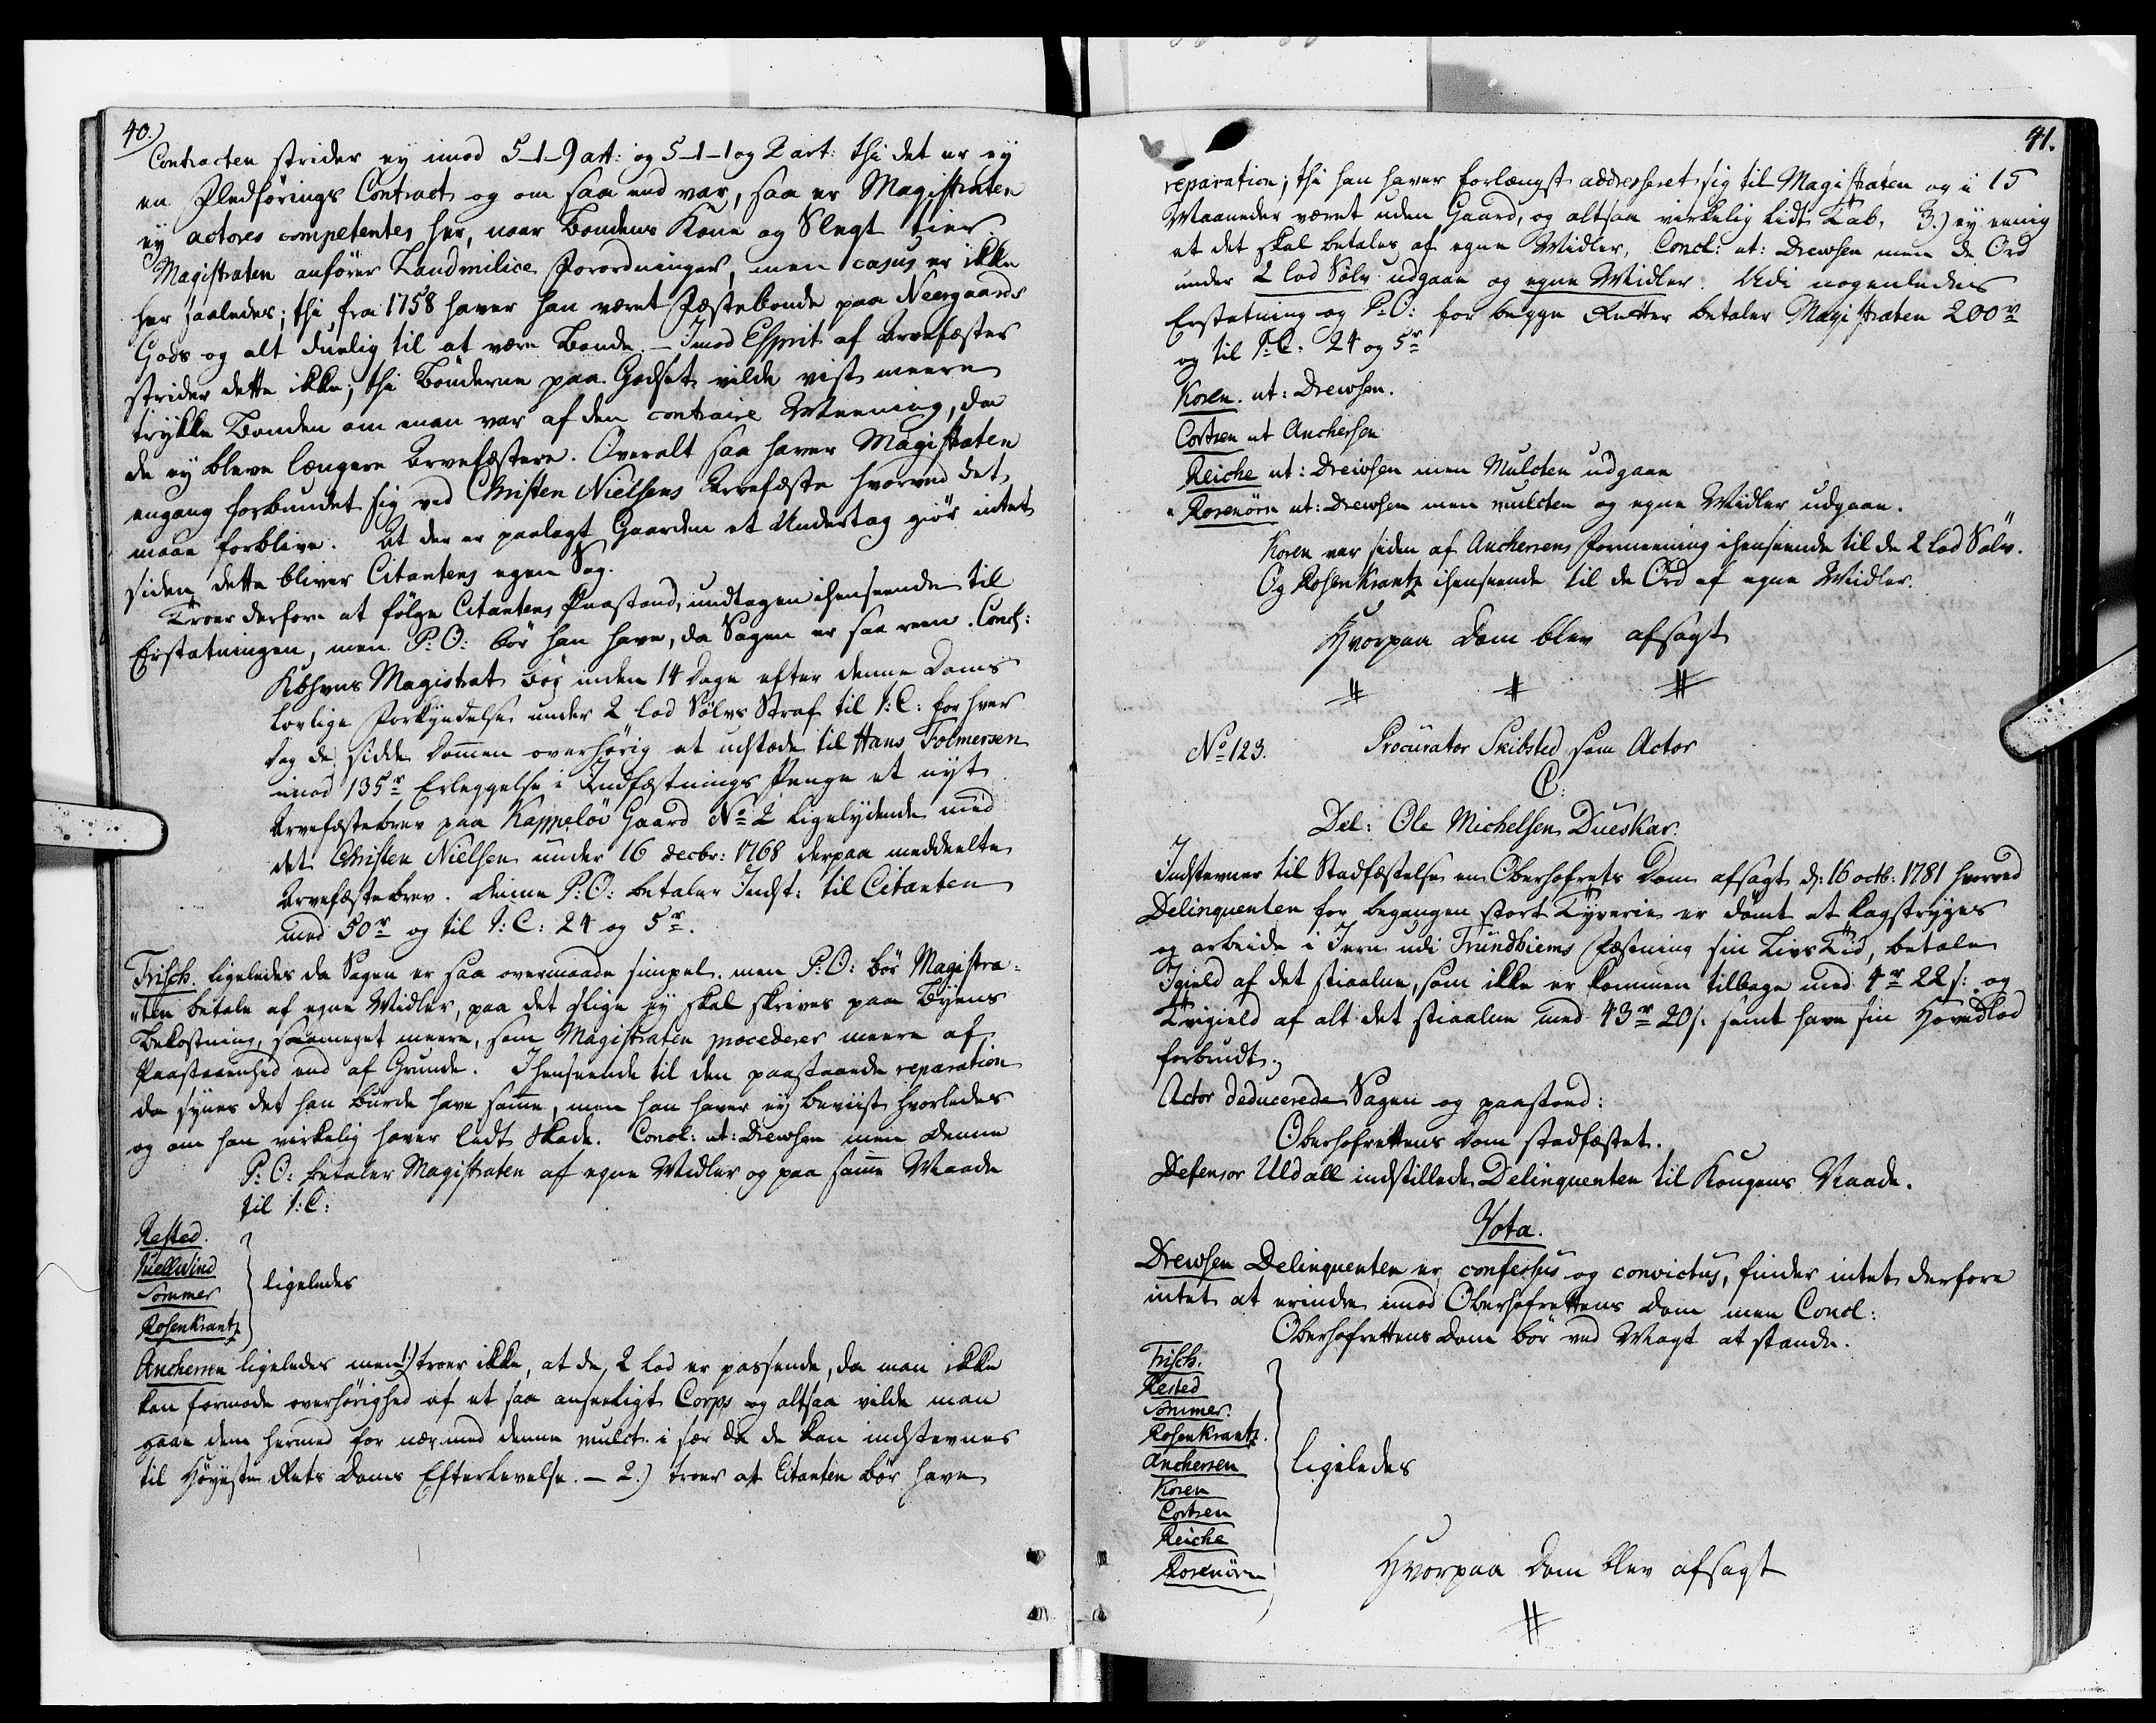 40.)
Contracten strider ey imod 5-1-9 art: og 5-1-1 og 2 art: thi det er ey
en Fledførings Contract og om saa end var, saa er Magistraten
ey actores competentes her, naar Bondens Kone og Slegt tier.
Magistraten anfører Landmilice Forordninger, men casus er ikke
her saaledes; thi fra 1758 haver han været Fæstebonde paa Neergaards
Gods og alt duelig til at være Bonde. - Imod Esprit af Arvefæstes
strider dette ikke; thi Bønderne paa Godset vilde vist meere
trykke Bonden om man var af den contraire Meening, da
de ey bleve længere Arvefæstere. Overalt saa haver Magistraten
engang forbundet sig ved Christen Nielsens Arvefæste hvorved det
maae forblive. At der er paalagt Gaarden et Undertag giør intet
siden dette bliver Citantens egen Sag.
Troer derfore at følge Citantens Paastand, undtagen ihenseende til
Erstatningen, men P: O: bør han have, da Sagen er saa reen. Concl:
Kbhvns Magistrat bør inden 14 Dage efter denne Doms
lovlige Forkyndelse under 2 lod Sølvs Straf til J: C: for hver
Dag de sidde Dom̅en overhørig at udstæde til Hans Folmersen
imod 135 r Erleggelse i Indfæstnings Penge et nyt
Arvefæstebrev paa Kappeløv Gaard No 2 ligelydende med
det Christen Nielsen under 16 decbr: 1768 derpaa meddeelte
Arvefæstebrev. Denne P: O: betaler Indst: til Citanten
med 50 r og til J: C: 24 og 5 r.
Frisch. ligeledes da Sagen er saa overmaade simpel. men P: O: bør Magistra-
ten betale af egne Midler, paa det slige ey skal skrives paa Byens
Bekostning, saameget meere, som Magistraten procederer meere af
Paastaaenhed end af Grunde. Ihenseende til den paastaaede reparation
da synes det han burde have sam̅e, men han haver ey beviist hvorledes
og om han virkelig haver ledt Skade. Concl: ut: Drewsen men denne
P: O: betaler Magistraten af egne Midler og paa sam̅e Maade
til J: C:
Rested.
Juellwind
Sommer
Rosenkrantz
ligeledes
Anchersen ligeledes men 1.) troer ikke, at de 2 lod er passende, da man ikke
kan formode overhørighed af et saa anseeligt Corps og altsaa vilde man
gaae dem hermed for nær med denne mulct. i sær da de kan indstevnes
til Høyeste Rets Doms Efterlevelse. - 2.) troer at Citanten bør have
41.
reparation; thi han haver forlængst addresseret sig til Magistraten og i 15
Maaneder været uden Gaard, og altsaa virkelig lidt Tab. 3.) ey eenig
at det skal betales af egne Midler. Concl: ut: Drewsen men de Ord
under 2 lod Sølv udgaae og egne Midler. Udi nogenledes
Erstatning og P: O: for begge Retter betaler Magistraten 200 r
og til J: C: 24 og 5 r
Koren. ut: Drewsen.
Cortsen ut Anchersen
Reiche ut: Drewsen men Mulcten udgaae
Rosenörn ut: Drewsen men mulcten og egne Midler udgaae.
Koren var siden af Anchersens Formeening ihenseende til de 2 lod Sølv.
Og Rosenkrantz ihenseende til de Ord af egne Midler.
Hvorpaa Dom blev afsagt
No 123. Procurator Skibsted som Actor
C:
Del: Ole Michelsen Dueskar.
Indstevner til Stadfæstelse en Oberhofrets Dom afsagt d: 16 octb: 1781 hvorved
Delinquenten for begangen stort Tyverie er dømt at kagstryges
og arbeide i Jern udi Trundhiems Fæstning sin Livs Tid, betale
Igield af det stiaalne, som ikke er kommen tilbage med 4 r 22 s: og
Tvigield af alt det stiaalne med 43 r 20 s. samt have sin Hovedlod
forbrudt.
Actor deducerede Sagen og paastod:
Oberhofrettens Dom stadfæstet.
Defensor Uldall indstillede Delinquenten til Kongens Naade.
Vota.
Drewsen Delinquenten er confessus og convictus, finder intet derfore
intet at erindre imod Oberhofrettens Dom men Concl:
Oberhofrettens Dom bør ved Magt at stande.
Frisch.
Rested
Sommer.
Rosenkrantz.
Anchersen
Koren
Cortsen
Reiche
Rosenörn
ligeledes
Hvorpaa Dom blev afsagt